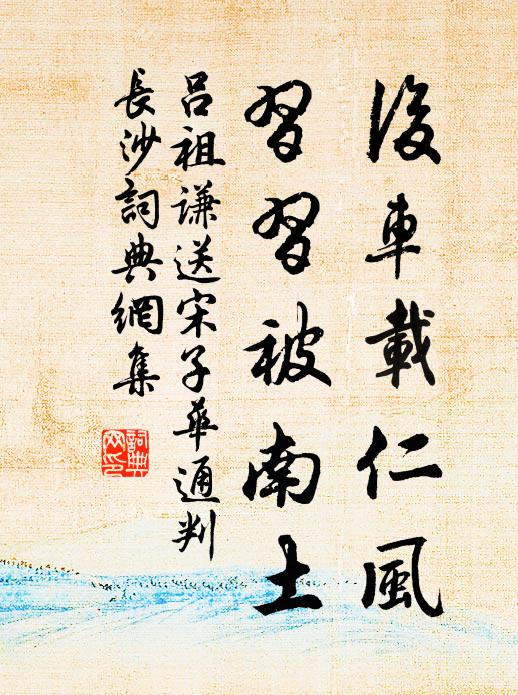 後車載仁風
習習被南土
吕祖謙送宋子華通判
長沙詞典網集
詞典